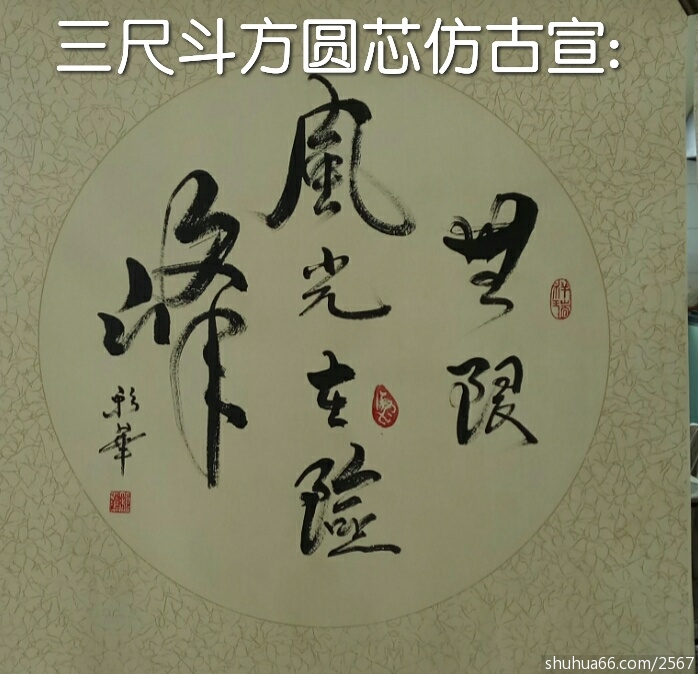 三尺斗方圆芯仿古宣:
無限
風光在險
峰
彩華
shuhua66.com/2567